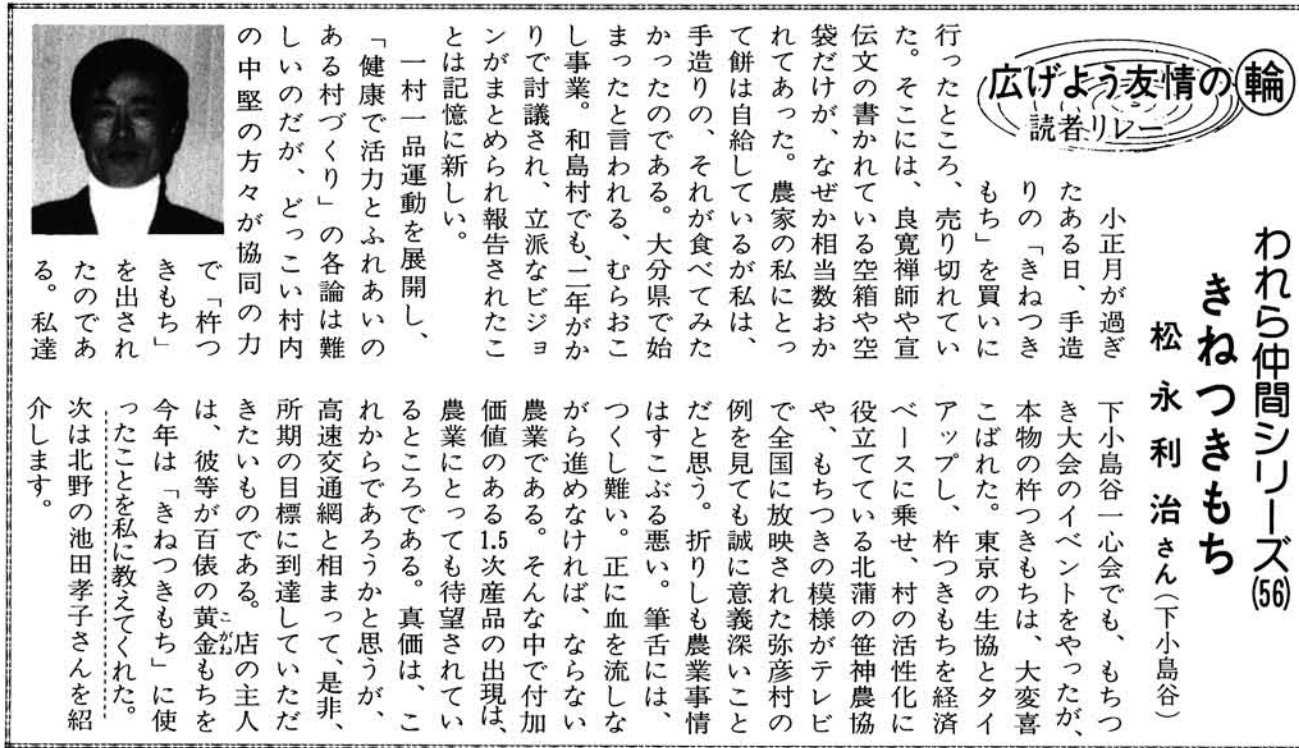 広げよう友情の輪
読者リレー
われら仲間シリーズ(56)
きねつきもち
松永利治さん(下小島谷)
小正月が過ぎ
たある日、手造
りの「きねつき
もち」を買いに
行ったところ、売り切れてい
た。そこには、良寛禅師や宣
伝文の書かれている空箱や空
袋だけが、なぜか相当数おか
れてあった。農家の私にとっ
て餅は自給しているが私は、
手造りの、それが食べてみた
かったのである。大分県で始
まったと言われる、むらおこ
し事業。和島村でも、二年がか
りで討議され、立派なビジョ
ンがまとめられ報告されたこ
とは記憶に新しい。
一村一品運動を展開し、
「健康で活力とふれあいの
ある村づくり」の各論は難
しいのだが、どっこい村内
の中堅の方々が協同の力
で「杵つ
きもち」
を出され
たのであ
る。私達
下小島谷一心会でも、もちつ
き大会のイベントをやったが、
本物の杵つきもちは、大変喜
こばれた。東京の生協とタイ
アップし、杵つきもちを経済
ベースに乗せ、村の活性化に
役立てている北蒲の笹神農協
や、もちつきの模様がテレビ
で全国に放映された弥彦村の
例を見ても誠に意義深いこと
だと思う。折りしも農業事情
はすこぶる悪い。筆舌には、
つくし難い。正に血を流しな
がら進めなければ、ならない
農業である。そんな中で付加
価値のある1.5次産品の出現は、
農業にとっても待望されてい
るところである。真価は、こ
れからであろうかと思うが、
高速交通網と相まって、是非、
所期の目標に到達していただ
きたいものである。店の主人
は、彼等が百俵の黄金もちを
こがね
今年は「きねつきもち」に使
ったことを私に教えてくれた。
次は北野の池田孝子さんを紹
介します。